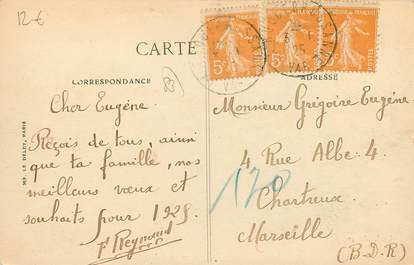 12 €
CARTE
CORRESPONDANCE
ADRESSE
Cher Eugène.
Reçois de tous, ainsi
que ta famille, nos
meilleurs vœux et
souhaits pour 1925.
Reynaud
(83)
Monsieur Grégoire Eugène
4 Rue Albe. 4
Chartreux
Marseille
(B-D-R)
120
5c
5c
POSTES
IMP. LE DELEY, PARIS